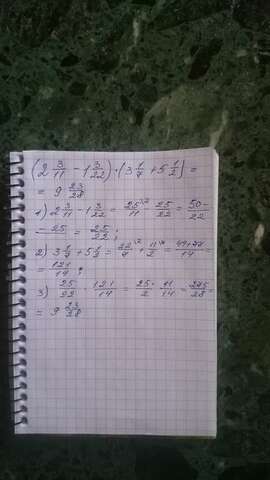 (2 3/11 - 1 3/22) · (3 1/7 + 5 1/2) =
= 9 23/28
1) 2 3/11 - 1 3/22 = 25/11 \2 - 25/22 = 50-
-25/22 = 25/22 ;
2) 3 1/7 + 5 1/2 = 22/7 \2 + 11/2 \7 = 44+77/14 =
= 121/14 ;
3) 25/22 · 121/14 = 25·11/2·14 = 275/28 =
= 9 23/28